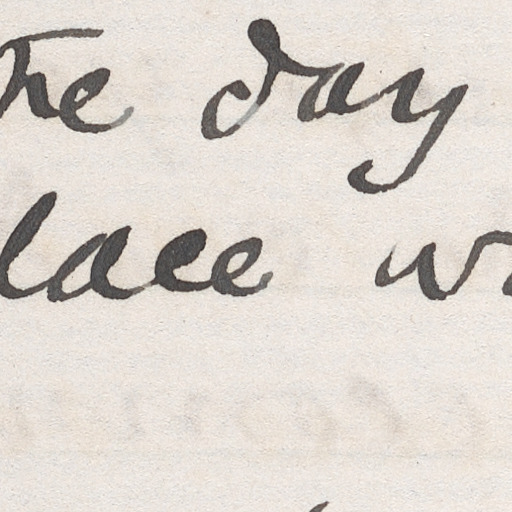 the day
lace w